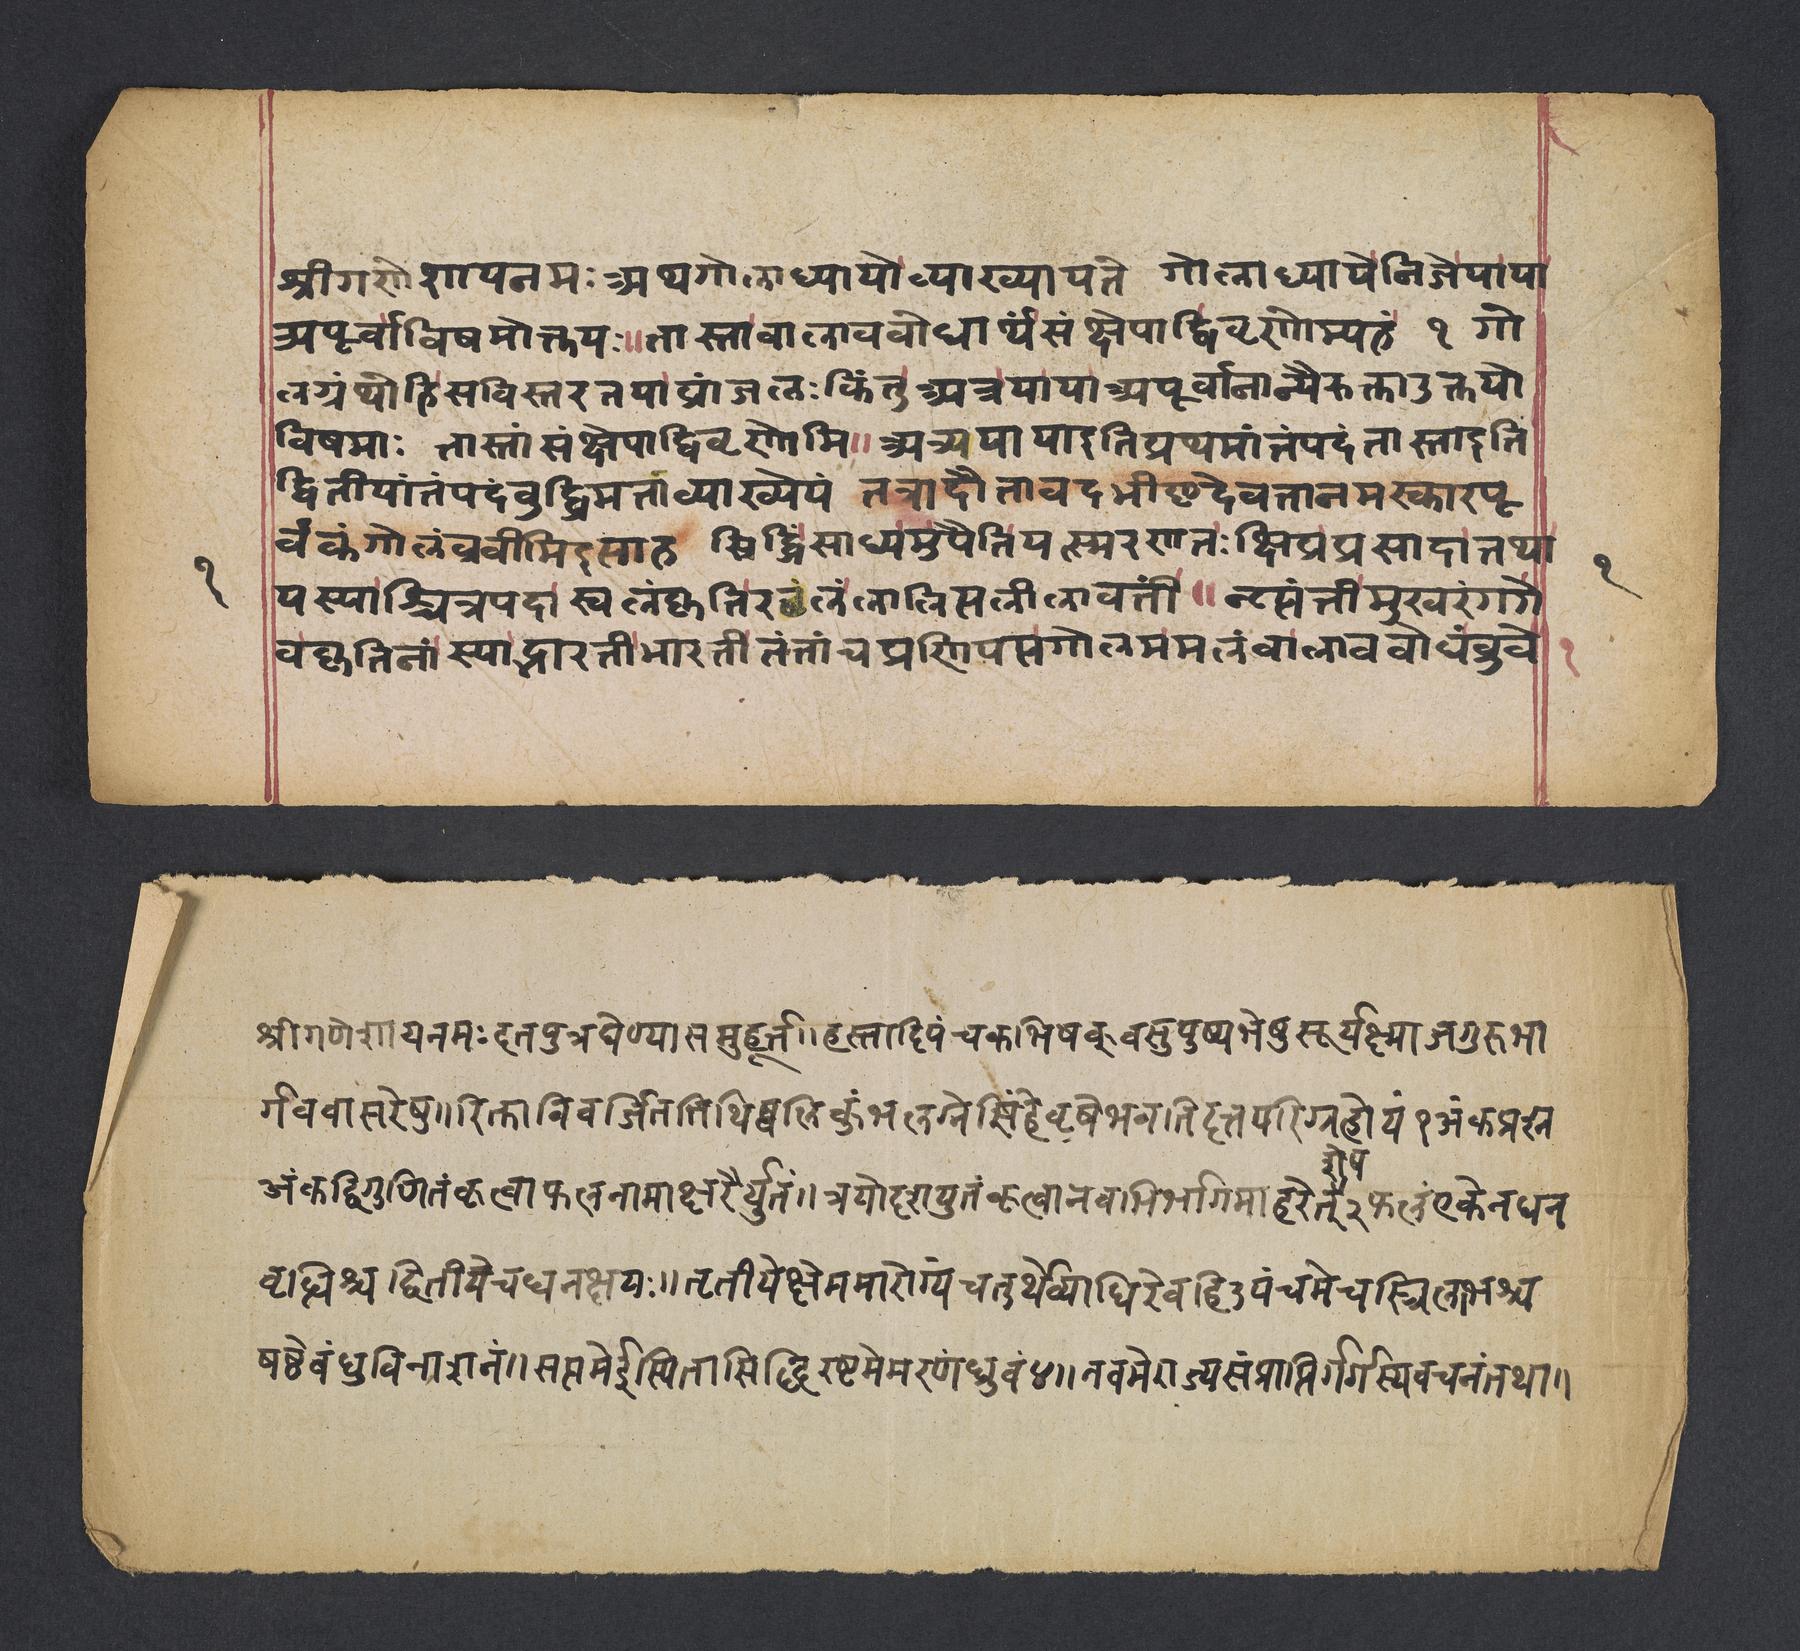 श्रीगणेशायनमः अथगोलाध्यायोव्याख्यायते गोलाध्यायेनिजेयाया
अपूर्वाविषमोक्तयः॥तास्ताबालावबोधार्थंसंक्षेपाद्विवृणोम्यहं १ गो
लग्रंथोहिसविस्तरतयाप्रांजलः किंतुअत्रयायाअपूर्वानान्यैरुक्ताउक्तयो
विषमाः तास्तांसंक्षेपाद्विवृणोमि॥अत्रयायाइतिप्रथमांतंपदंतास्ताइति
द्वितीयांतंपदंबुद्धिमताव्याख्येयं तत्रादौतावदभीष्टदेवतानमस्कारपू
र्वकंगोलंब्रवीमिइत्याह सिद्धिंसाध्यमुपैतियत्स्मरणतः क्षिप्रंप्रसादात्तथा
यस्याश्चित्रपदास्वलंकृतिरलंलालित्यलीलावती॥नृत्यंतीमुखरंगगे
वकृतिनांस्याद्भारतीभारतीतंतांचप्रणिपत्यगोलममलंबालावबोधंब्रुवे
१
१
१
श्रीगणेशायनमः दत्तपुत्रघेण्यासमुहूर्त॥हस्तादिपंचकभिषक्वसुपुष्यभेषुसूर्यक्ष्माजगुरुभा
र्गववासरेषु॥रिक्ताविवर्जिततिथिष्वलिकुंभलग्नेसिंहेवृषेभवतिदत्तपरिग्रहोयं१अंकप्रश्न
अंकद्विगुणितंकृत्वाफलनामाक्षरैर्युतं॥त्रयोदशयुतंकृत्वानवभिर्भागमाहरेत्२फलंएकेनधन
शेष
वृद्धिश्चद्वितीयेचधनक्षयः॥तृतीयेक्षेममारोग्यंचतुर्थेव्याधिरेवहि३पंचमेचस्त्रिलाभश्च
षष्ठेबंधुविनाशनं॥सप्तमेईप्सितासिद्धिरष्टमेमरणंध्रुवं४॥नवमेराज्यसंप्राप्तिर्गर्गस्यवचनंतथा॥